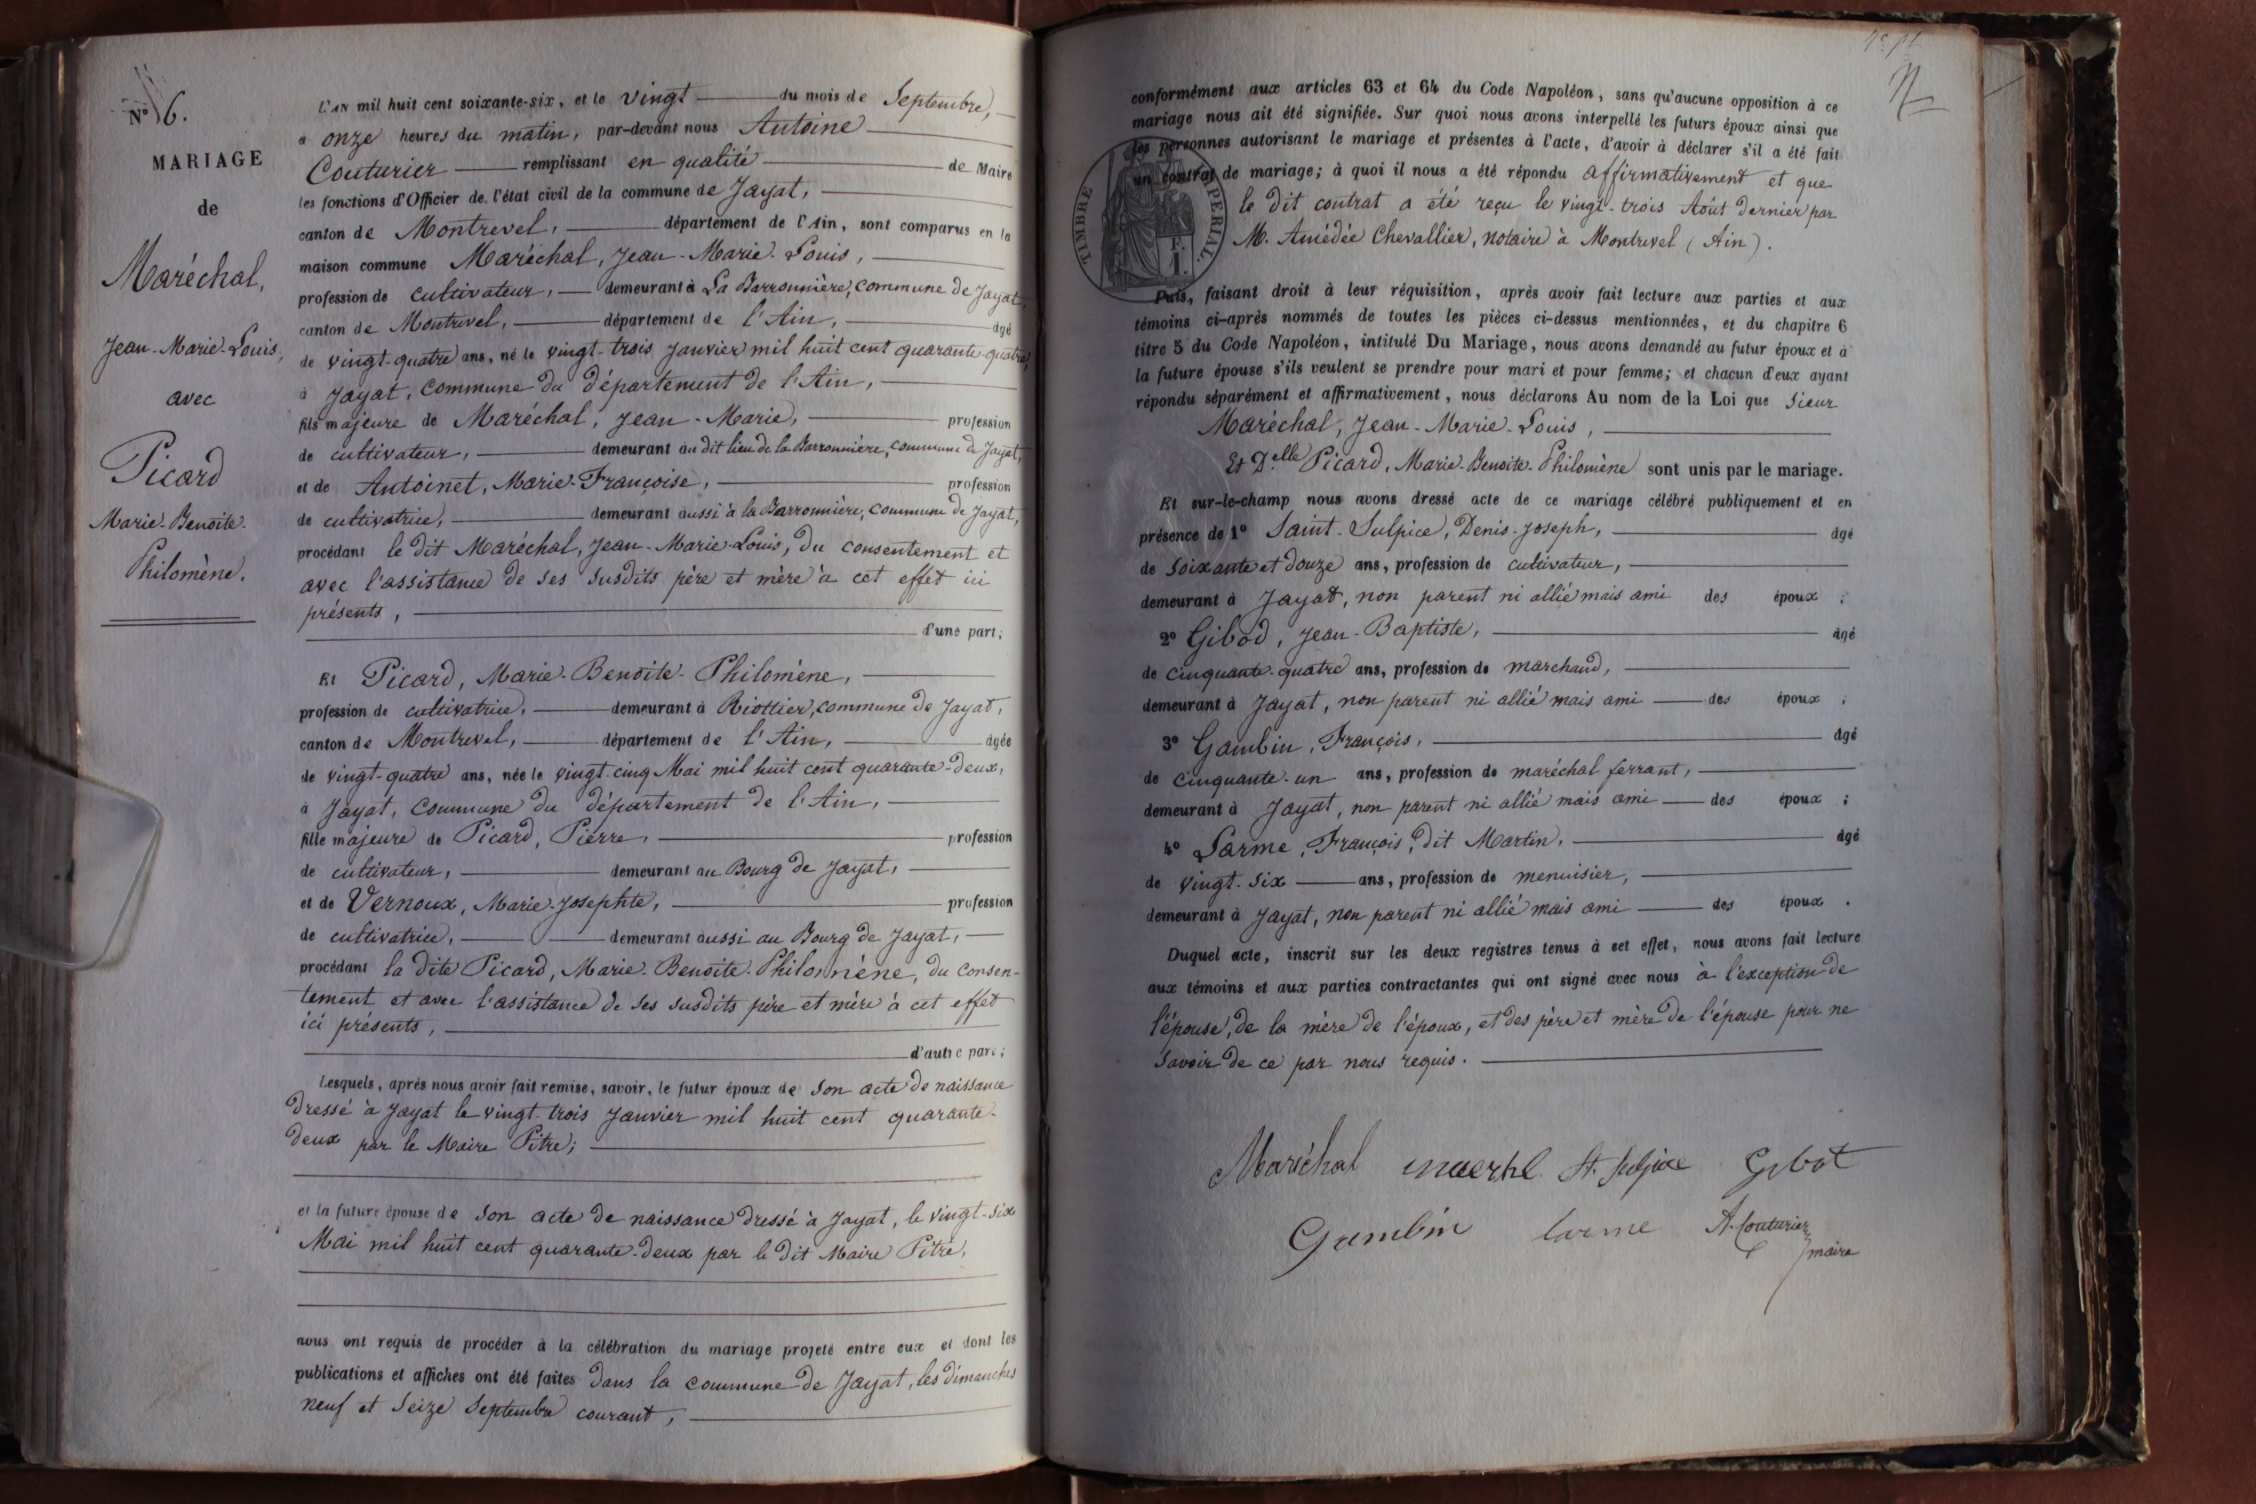 N° 6.
MARIAGE
de
Maréchal,
Jean-Marie-Louis,
avec
Picard
Marie-Benoite-
Philomène.
L'AN mil huit cent soixante-six, et le vingt du mois de Septembre,
à onze heures du matin, par-devant nous Antoine
Couturier remplissant en qualité de Maire
les fonctions d'Officier de l'état civil de la commune de Jayat,
canton de Montrevel, département de l'Ain, sont comparus en la
maison commune Maréchal, Jean-Marie-Louis,
profession de cultivateur, demeurant à La Barronnière, commune de Jayat,
canton de Montrevel, département de l'Ain, âgé
de vingt-quatre ans, né le vingt-trois Janvier mil huit cent quarante-quatre,
à Jayat, commune du département de l'Ain,
fils majeure de Maréchal, Jean-Marie, profession
de cultivateur, demeurant au dit lieu de la Barronnière, commune de Jayat,
et de Antoinet, Marie-Françoise, profession
de cultivatrice, demeurant aussi à la Barronnière, commune de Jayat,
procédant le dit Maréchal, Jean-Marie-Louis, du consentement et
avec l'assistance de ses susdits père et mère à cet effet ici
présents,
d'une part;
Et Picard, Marie-Benoite-Philomène,
profession de cultivatrice, demeurant à Riottier, commune de Jayat,
canton de Montrevel, département de l'Ain, âgée
de vingt-quatre ans, née le vingt-cinq Mai mil huit cent quarante-deux,
à Jayat, commune du département de l'Ain,
fille majeure de Picard, Pierre, profession
de cultivateur, demeurant au Bourg de Jayat,
et de Vernoux, Marie-Josephte, profession
de cultivatrice, demeurant aussi au Bourg de Jayat,
procédant la dite Picard, Marie-Benoite-Philomène, du consen-
tement et avec l'assistance de ses susdits père et mère à cet effet
ici présents,
d'autre part;
Lesquels, après nous avoir fait remise, savoir, le futur époux de son acte de naissance
dressé à Jayat le vingt-trois Janvier mil huit cent quarante-
deux par le Maire Pitre;
et la future épouse de son acte de naissance dressé à Jayat, le vingt-six
Mai mil huit cent quarante-deux par le dit Maire Pitre,
nous ont requis de procéder à la célébration du mariage projeté entre eux et dont les
publications et affiches ont été faites dans la commune de Jayat, les dimanches
neuf et seize Septembre courant,
conformément aux articles 63 et 64 du Code Napoléon, sans qu'aucune opposition à ce
mariage nous ait été signifiée. Sur quoi nous avons interpellé les futurs époux ainsi que
les personnes autorisant le mariage et présentes à l'acte, d'avoir à déclarer s'il a été fait
un contrat de mariage; à quoi il nous a été répondu affirmativement et que
le dit contrat a été reçu le vingt-trois Août dernier par
M. Amédée Chevallier, notaire à Montrevel (Ain).
TIMBRE IMPERIAL
F.
1.
Puis, faisant droit à leur réquisition, après avoir fait lecture aux parties et aux
témoins ci-après nommés de toutes les pièces ci-dessus mentionnées, et du chapitre 6
titre 5 du Code Napoléon, intitulé Du Mariage, nous avons demandé au futur époux et à
la future épouse s'ils veulent se prendre pour mari et pour femme; et chacun d'eux ayant
répondu séparément et affirmativement, nous déclarons Au nom de la Loi que sieur
Maréchal, Jean-Marie-Louis,
Et Delle Picard, Marie-Benoite-Philomène sont unis par le mariage.
Et sur-le-champ nous avons dressé acte de ce mariage célébré publiquement et en
présence de 1° Saint-Sulpice, Denis-Joseph, âgé
de soixante et douze ans, profession de cultivateur,
demeurant à Jayat, non parent ni allié mais ami des époux ;
2° Gibod, Jean-Baptiste, âgé
de cinquante-quatre ans, profession de marchand,
demeurant à Jayat, non parent ni allié mais ami des époux ;
3° Gambin, François, âgé
de cinquante-un ans, profession de maréchal ferrant,
demeurant à Jayat, non parent ni allié mais ami des époux ;
4° Larme, François, dit Martin, âgé
de vingt-six ans, profession de menuisier,
demeurant à Jayat, non parent ni allié mais ami des époux .
Duquel acte, inscrit sur les deux registres tenus à cet effet, nous avons fait lecture
aux témoins et aux parties contractantes qui ont signé avec nous à l'exception de
l'épouse, de la mère de l'époux, et des père et mère de l'épouse pour ne
savoir de ce par nous requis.
Maréchal St. Sulpice Gibot
Gambin Larme A. Couturier
maire